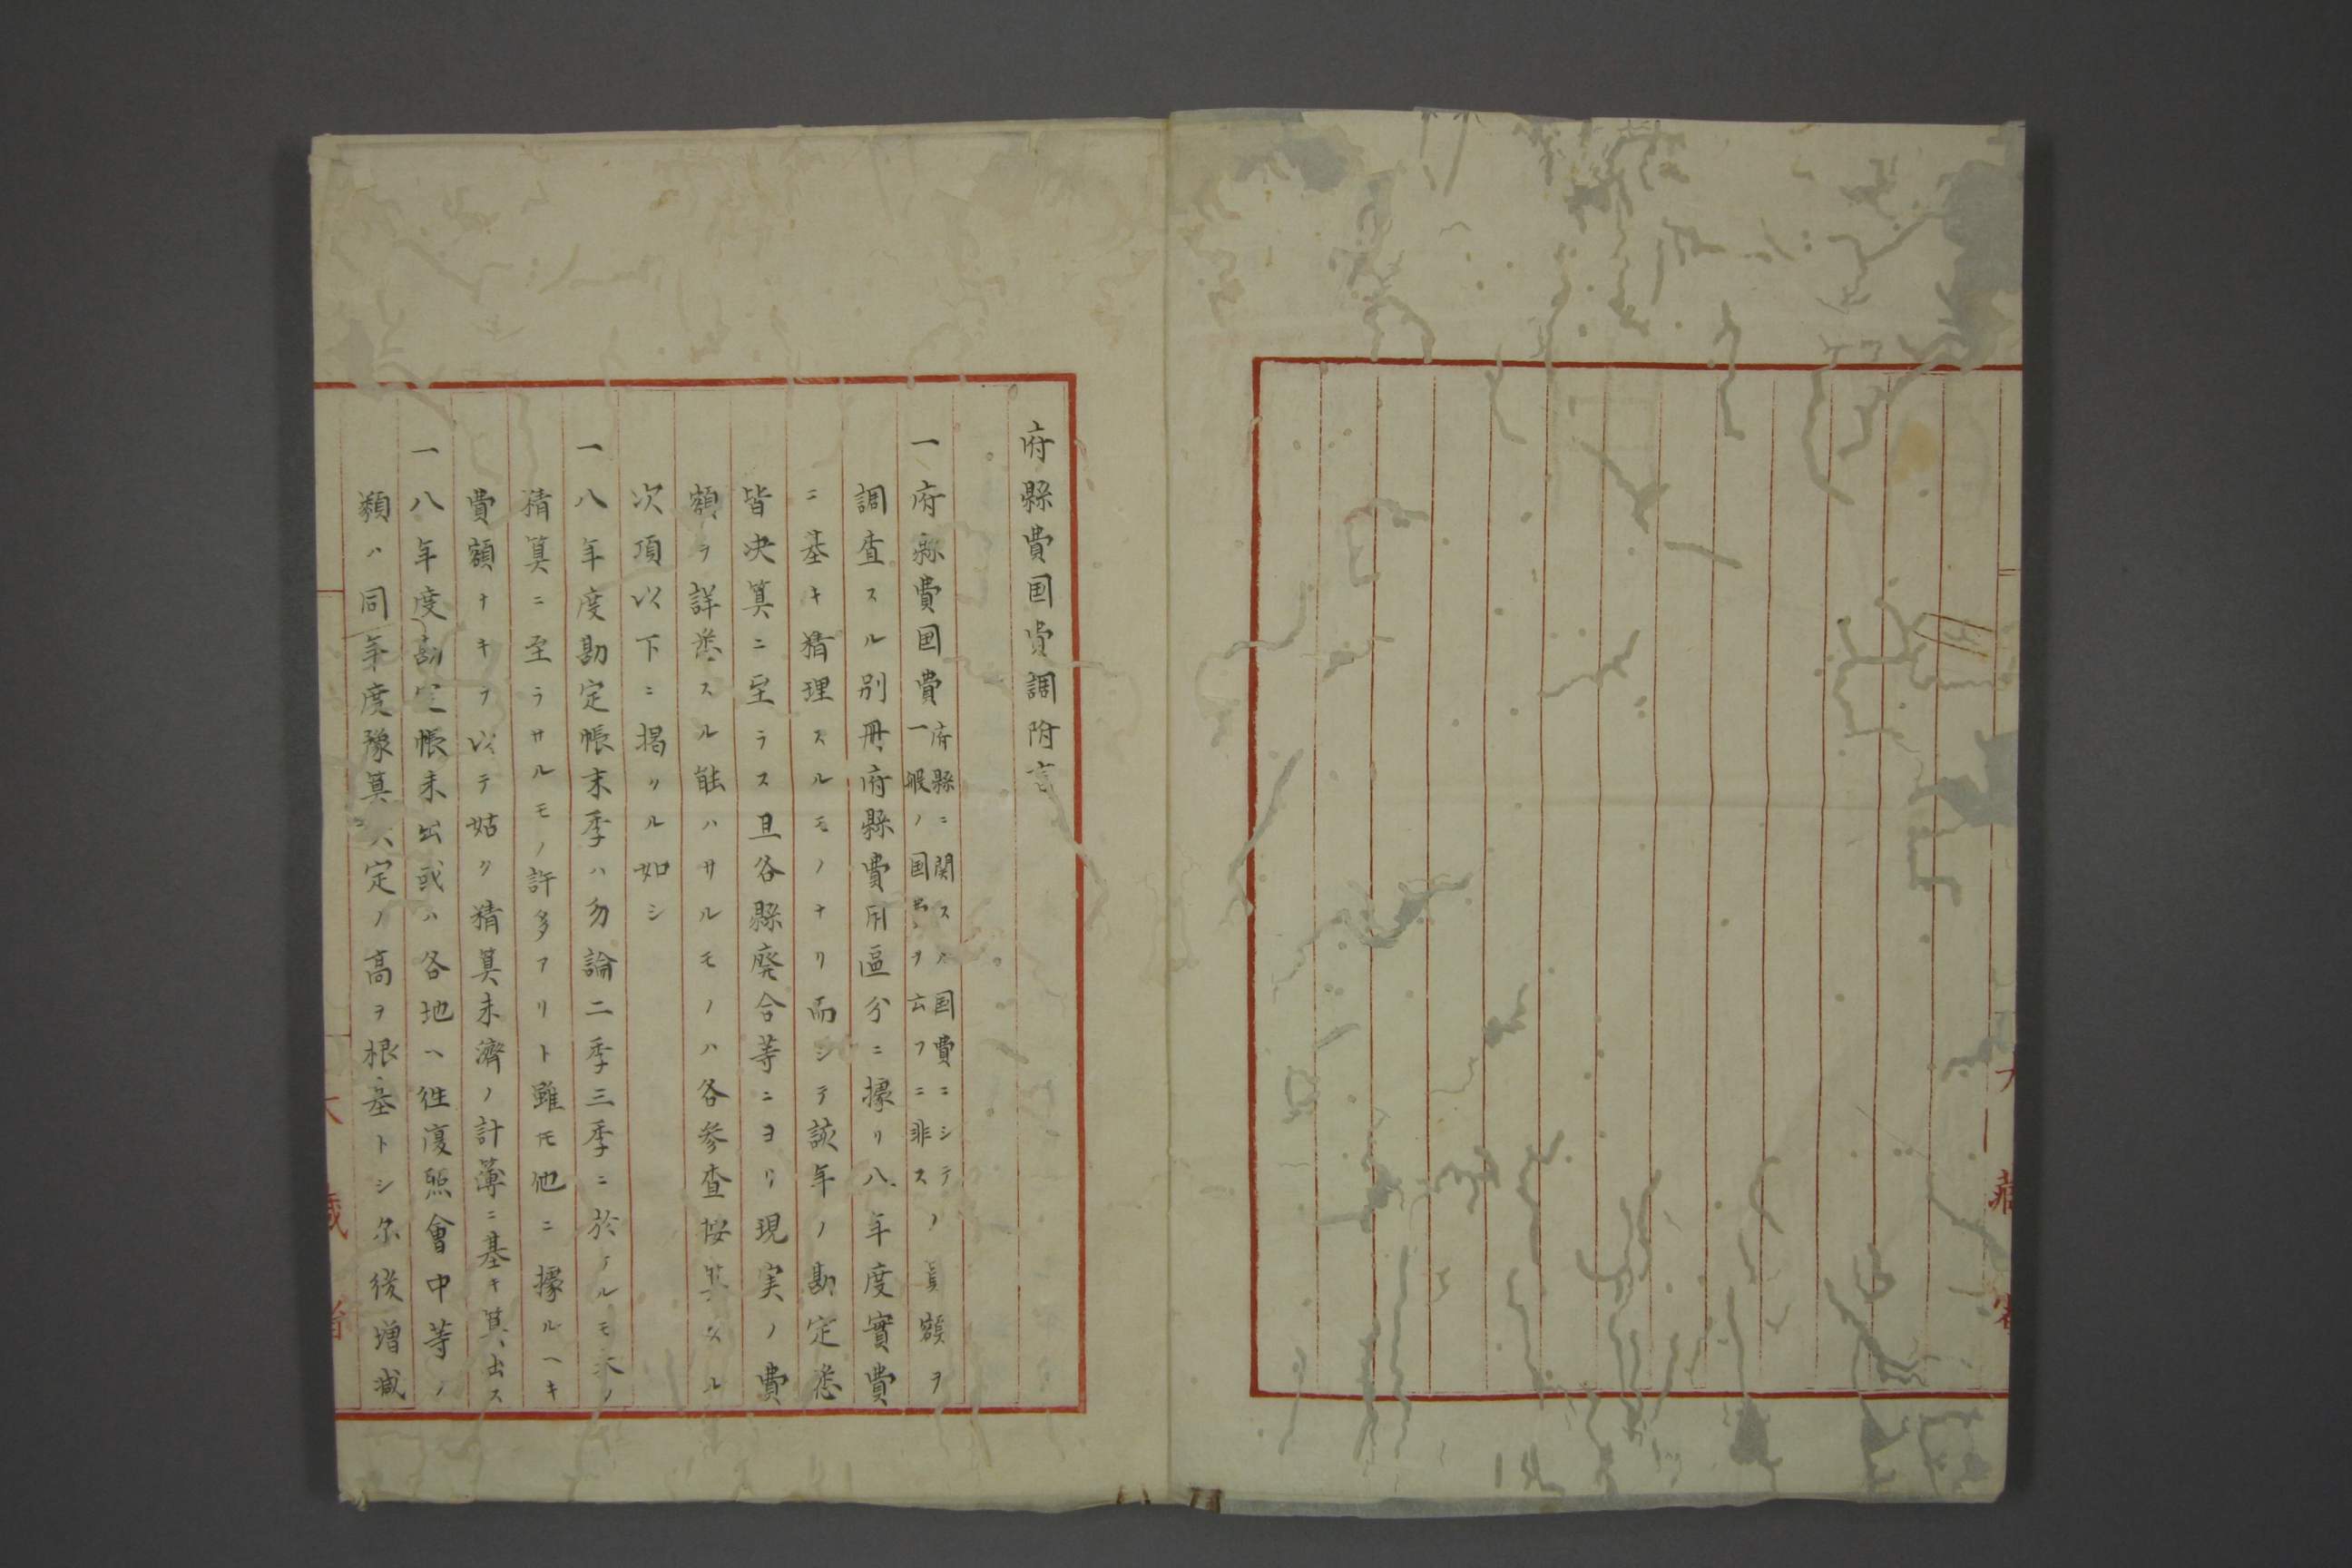 府縣費国費調附言
一府縣費国費府縣ニ関スル国費ニシテ一般ノ国費ヲ云フニ非スノ眞額ヲ
調査スル別冊府縣費用區分ニ據リ八年度實費
ニ基キ精理スルモノナリ而シテ該年ノ勘定悉
皆决算ニ至ラス且各縣廃合等ニヨリ現実ノ費
額ヲ詳悉スル能ハサルモノハ各参査按算スル
次項以下ニ揭クル如シ
一八年度勘定帳末季ハ勿論二季三季ニ於テルモ未ノ
精算ニ至ラサルモノ許多アリト雖モ他ニ據ルヘキ
費額ナキヲ以テ姑ク精算未濟ノ計薄ニ基キ算出ス
一八年度勘定帳未出或ハ各地ヘ徃復照會中等ノ
類ハ同年度豫算定ノ高ヲ根基トシ尓後増减
大蔵省